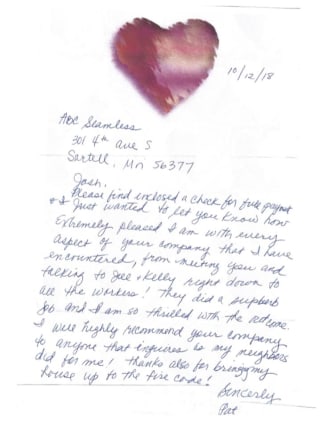 10/12/18
ABC Seamless
301 4th Ave S
Sartell, Mn 56377
Josh,
Please find enclosed a check for full payment
& I just wanted to let you know how
Extremely pleased I am with every
aspect of your company that I have
encountered, from meeting you and
talking to Joe & Kelly right down to
all the workers! They did a supberb
job and I am so thrilled with the outcome.
I will highly recommend your company
to anyone that inquires as my neighbors
did for me! Thanks also for bringing my
house up to the fire code!
Sincerely
Pat